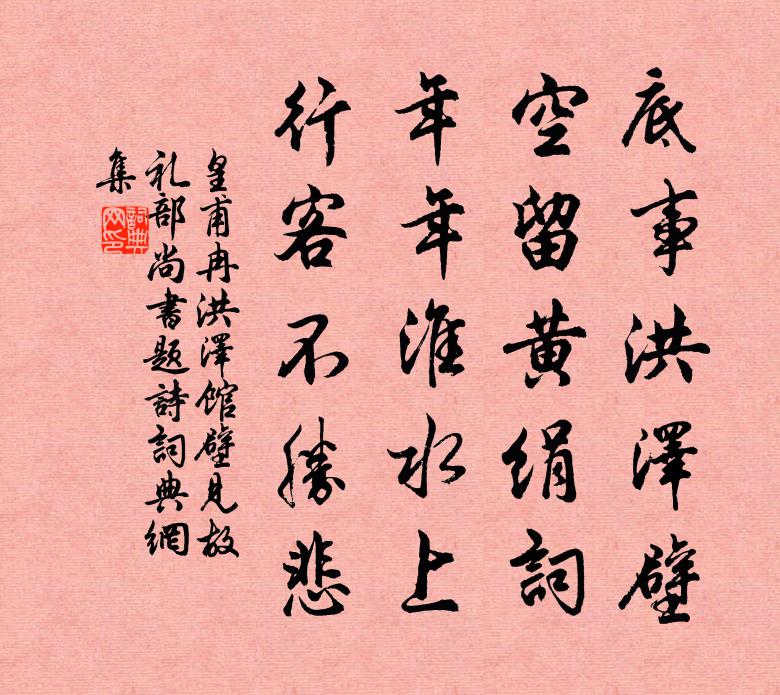 底事洪澤壁
空留黄絹詞
年年淮水上
行客不勝悲
皇甫冉洪澤館壁見故
礼部尚書題詩詞典網
集
詞典網印